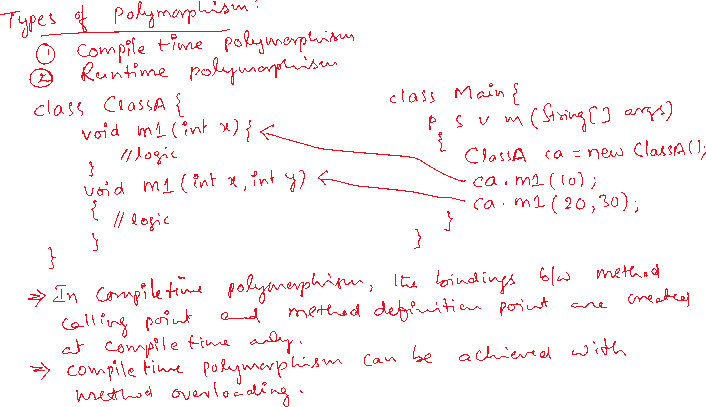 Types of polymorphism:
① Compile time polymorphism
② Runtime polymorphism
class ClassA {
void m1 (int x) {
//logic
}
void m1 (int x, int y)
{
// logic
}
}
class Main {
p s v m (String[] args)
{
ClassA ca = new ClassA();
ca.m1(10);
ca.m1(20,30);
}
}
⇒ In compiletime polymorphism, the bindings b/w method
calling point and method definition point are created
at compile time only.
⇒ compiletime polymorphism can be achieved with
method overloading.